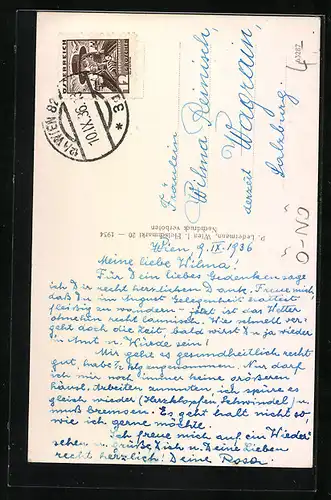 ÖSTERREICH
12
12/1 WIEN 82
10.IX.36
* 3c *
Fräulein
Wilma Reinisch,
derzeit Wagrain,
Salzburg.
P. Ledermann, Wien I. Fleischmarkt 20 — 1934
Nachdruck verboten
O-NÖ
Wien, 9.IX.1936
Meine liebe Wilma!
Für Dein liebes Gedenken sage
ich Dir recht herzlichen Dank. Freue mich,
daß Du im August Gelegenheit hattest
fleißig zu wandern – jetzt ist das Wetter
ohnehin recht launisch. Wie schnell ver-
geht doch die Zeit, bald wirst Du ja wieder
in Amt u. Würde sein!
Mir gehts gesundheitlich recht
gut, habe zugenommen. Nur darf
ich mir noch immer keine größeren
häusl. Arbeiten zumuten, ich spüre es
gleich wieder (Herzklopfen, Schwindel) u.
muß bremsen. Es geht halt nicht so,
wie ich gerne möchte.
Ich freue mich auf ein Wieder
sehen u. grüße Dich u. Deine Lieben
recht herzlich! Deine Rosa.